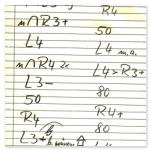 m∩R3+
L4
m∩R4 2x
L3-
50
R4
L3+
R4
50
L4 m.a.
L4>R3+
80
R4+
80